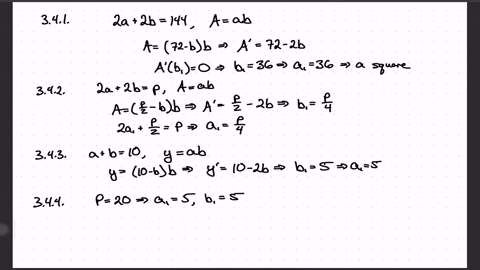 3.4.1. 2a+2b=144, A=ab
A=(72-b)b ⇒ A'=72-2b
A'(b₁)=0 ⇒ b₁=36 ⇒ a₁=36 ⇒ a square
3.4.2. 2a+2b=P, A=ab
A=(P/2-b)b ⇒ A'=P/2-2b ⇒ b₁=P/4
2a₁+P/2=P ⇒ a₁=P/4
3.4.3. a+b=10, y=ab
y=(10-b)b ⇒ y'=10-2b ⇒ b₁=5 ⇒ a₁=5
3.4.4. P=20 ⇒ a₁=5, b₁=5